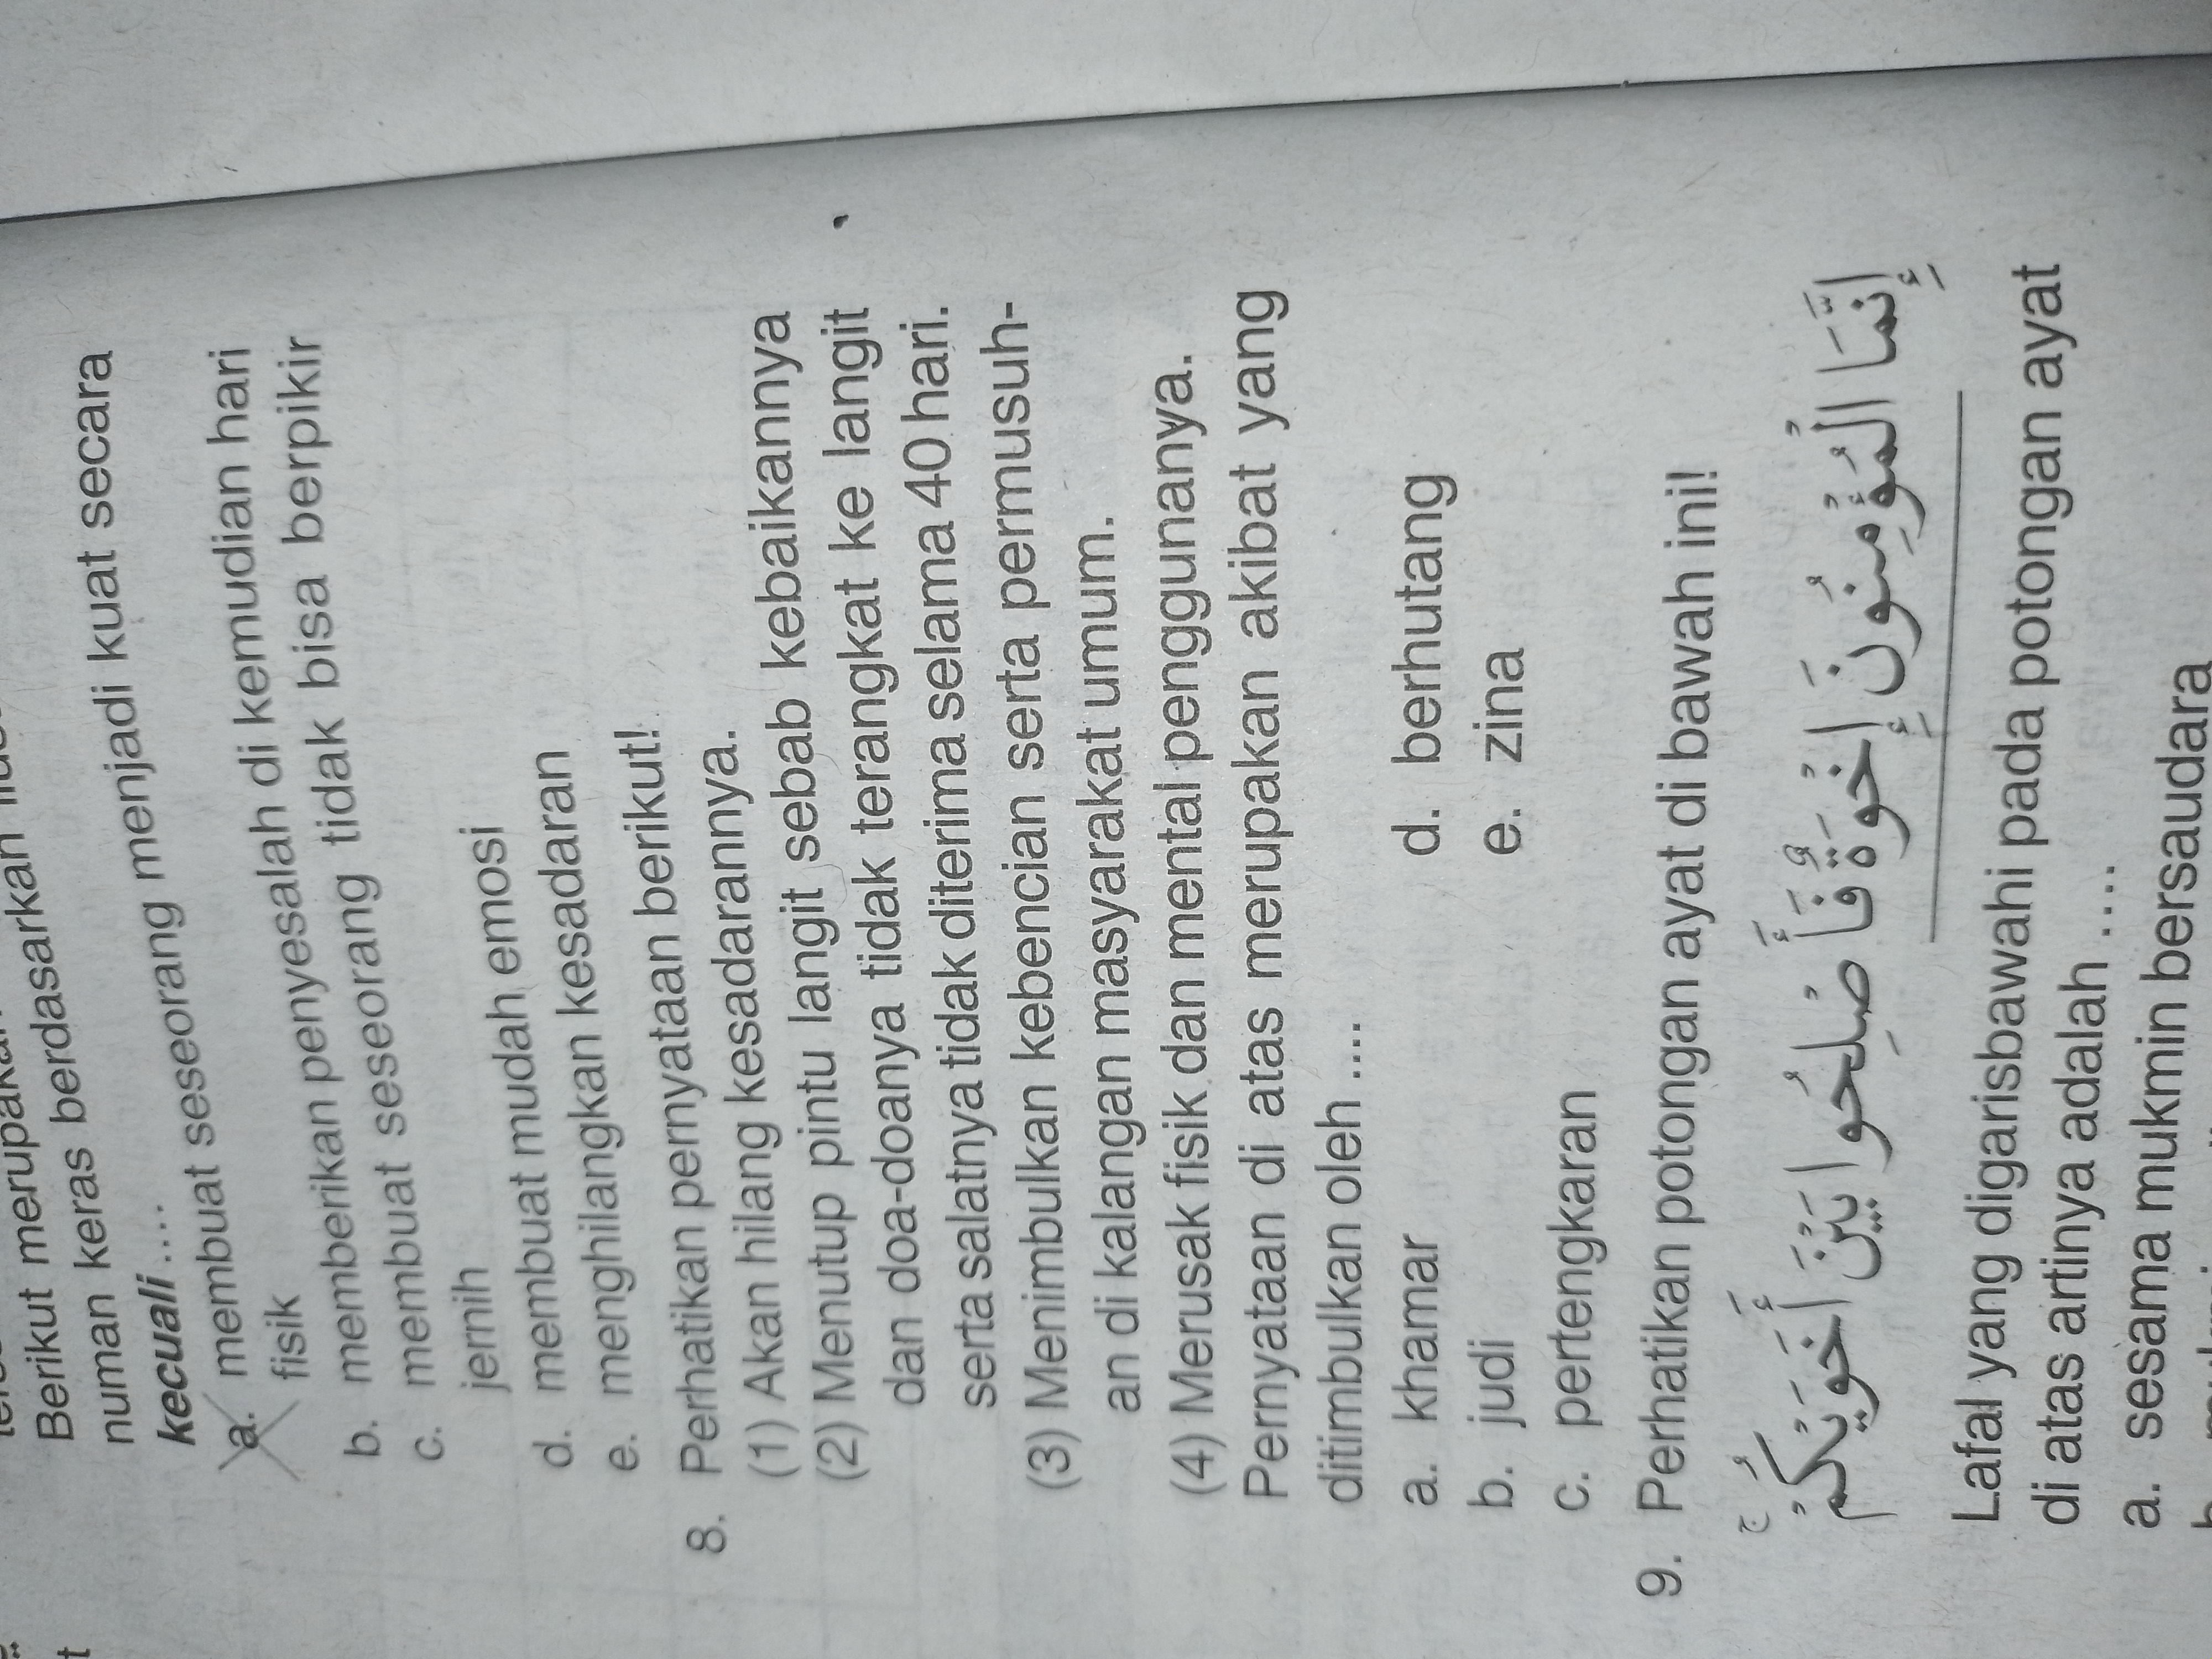 Berikut
numan keras berdasarkan
kecuali ....
a. membuat seseorang menjadi kuat secara
fisik
b. memberikan penyesalah di kemudian hari
c. membuat seseorang tidak bisa berpikir
jernih
d. membuat mudah emosi
e. menghilangkan kesadaran
8. Perhatikan pernyataan berikut!
(1) Akan hilang kesadarannya.
(2) Menutup pintu langit sebab kebaikannya
dan doa-doanya tidak terangkat ke langit
serta salatnya tidak diterima selama 40 hari.
(3) Menimbulkan kebencian serta permusuh-
an di kalangan masyarakat umum.
(4) Merusak fisik dan mental penggunanya.
Pernyataan di atas merupakan akibat yang
ditimbulkan oleh ....
a. khamar d. berhutang
b. judi e. zina
c. pertengkaran
9. Perhatikan potongan ayat di bawah ini!
إِنَّمَا الْمُؤْمِنُونَ إِخْوَةٌ فَأَصْلِحُوا بَيْنَ أَخَوَيْكُمْ ۚ
Lafal yang digarisbawahi pada potongan ayat
di atas artinya adalah ....
a. sesama mukmin bersaudara